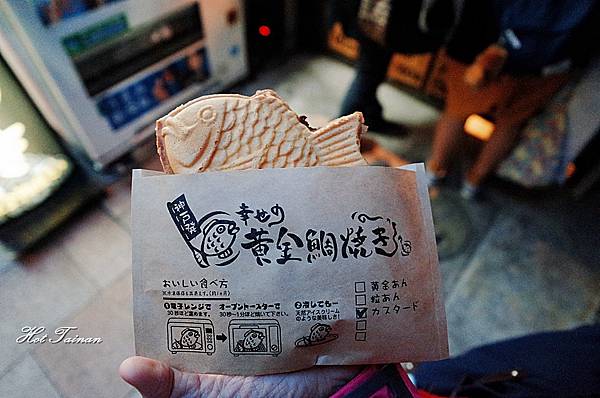 神戸発
幸せの
黄金鯛焼き
おいしい食べ方
❶電子レンジで
30秒ほど温めます。
オーブントースターで
30秒~1分ほど焼いて下さい。
❷冷しても一
天然アイスクリーム
のような美味しさ!
□黄金あん
□粒あん
☑カスタード
□
□
Hot Tainan